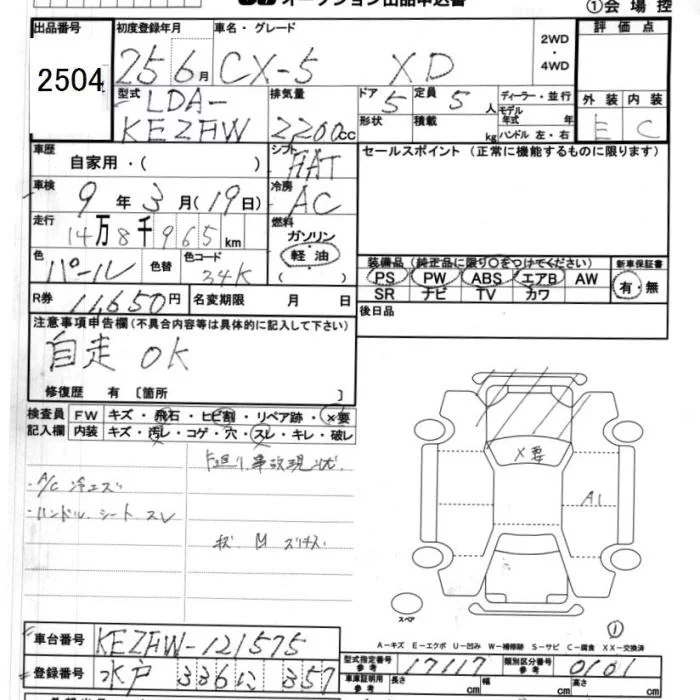 オークション出品申込書
①会場控
出品番号 初度登録年月 車名・グレード 2WD・4WD 評価点
2504 25 6月 CX-5 XD
型式 排気量 ドア 定員 ディーラー・並行 外装 内装
LDA-KE2FW 2200cc 5 5人 モデル年式 年 E C
形状 積載 kg ハンドル 左・右
車歴 シフト セールスポイント(正常に機能するものに限ります)
自家用・( ) FAT
車検 冷房
9年3月(19日) AC
走行 燃料
14万8千965km ガソリン
軽油
( )
色 色替 色コード
パール 34K
装備品(純正品に限り○をつけてください) 新車保証書
PS PW ABS エアB AW 有・無
SR ナビ TV カワ
R券 11,650円 名変期限 月 日
後日品
注意事項申告欄(不具合内容等は具体的に記入して下さい)
自走 OK
修復歴 有 〔箇所 〕
検査員 FW キズ・飛石・ヒビ割・リペア跡・×要
記入欄 内装 キズ・汚レ・コゲ・穴・スレ・キレ・破レ
事故現状
・A/C 冷エズ
・ハンドル、シート スレ
×要
A1
スペア
①
A-キズ E-エクボ U-凹み W-補修跡 S-サビ C-腐食 XX-交換済
車台番号 KE2FW-121575
型式指定番号 参考 17117 類別区分番号 参考 0101
登録番号 水戸 336 に 357
車庫証明用 参考 長さ cm 幅 cm 高さ cm